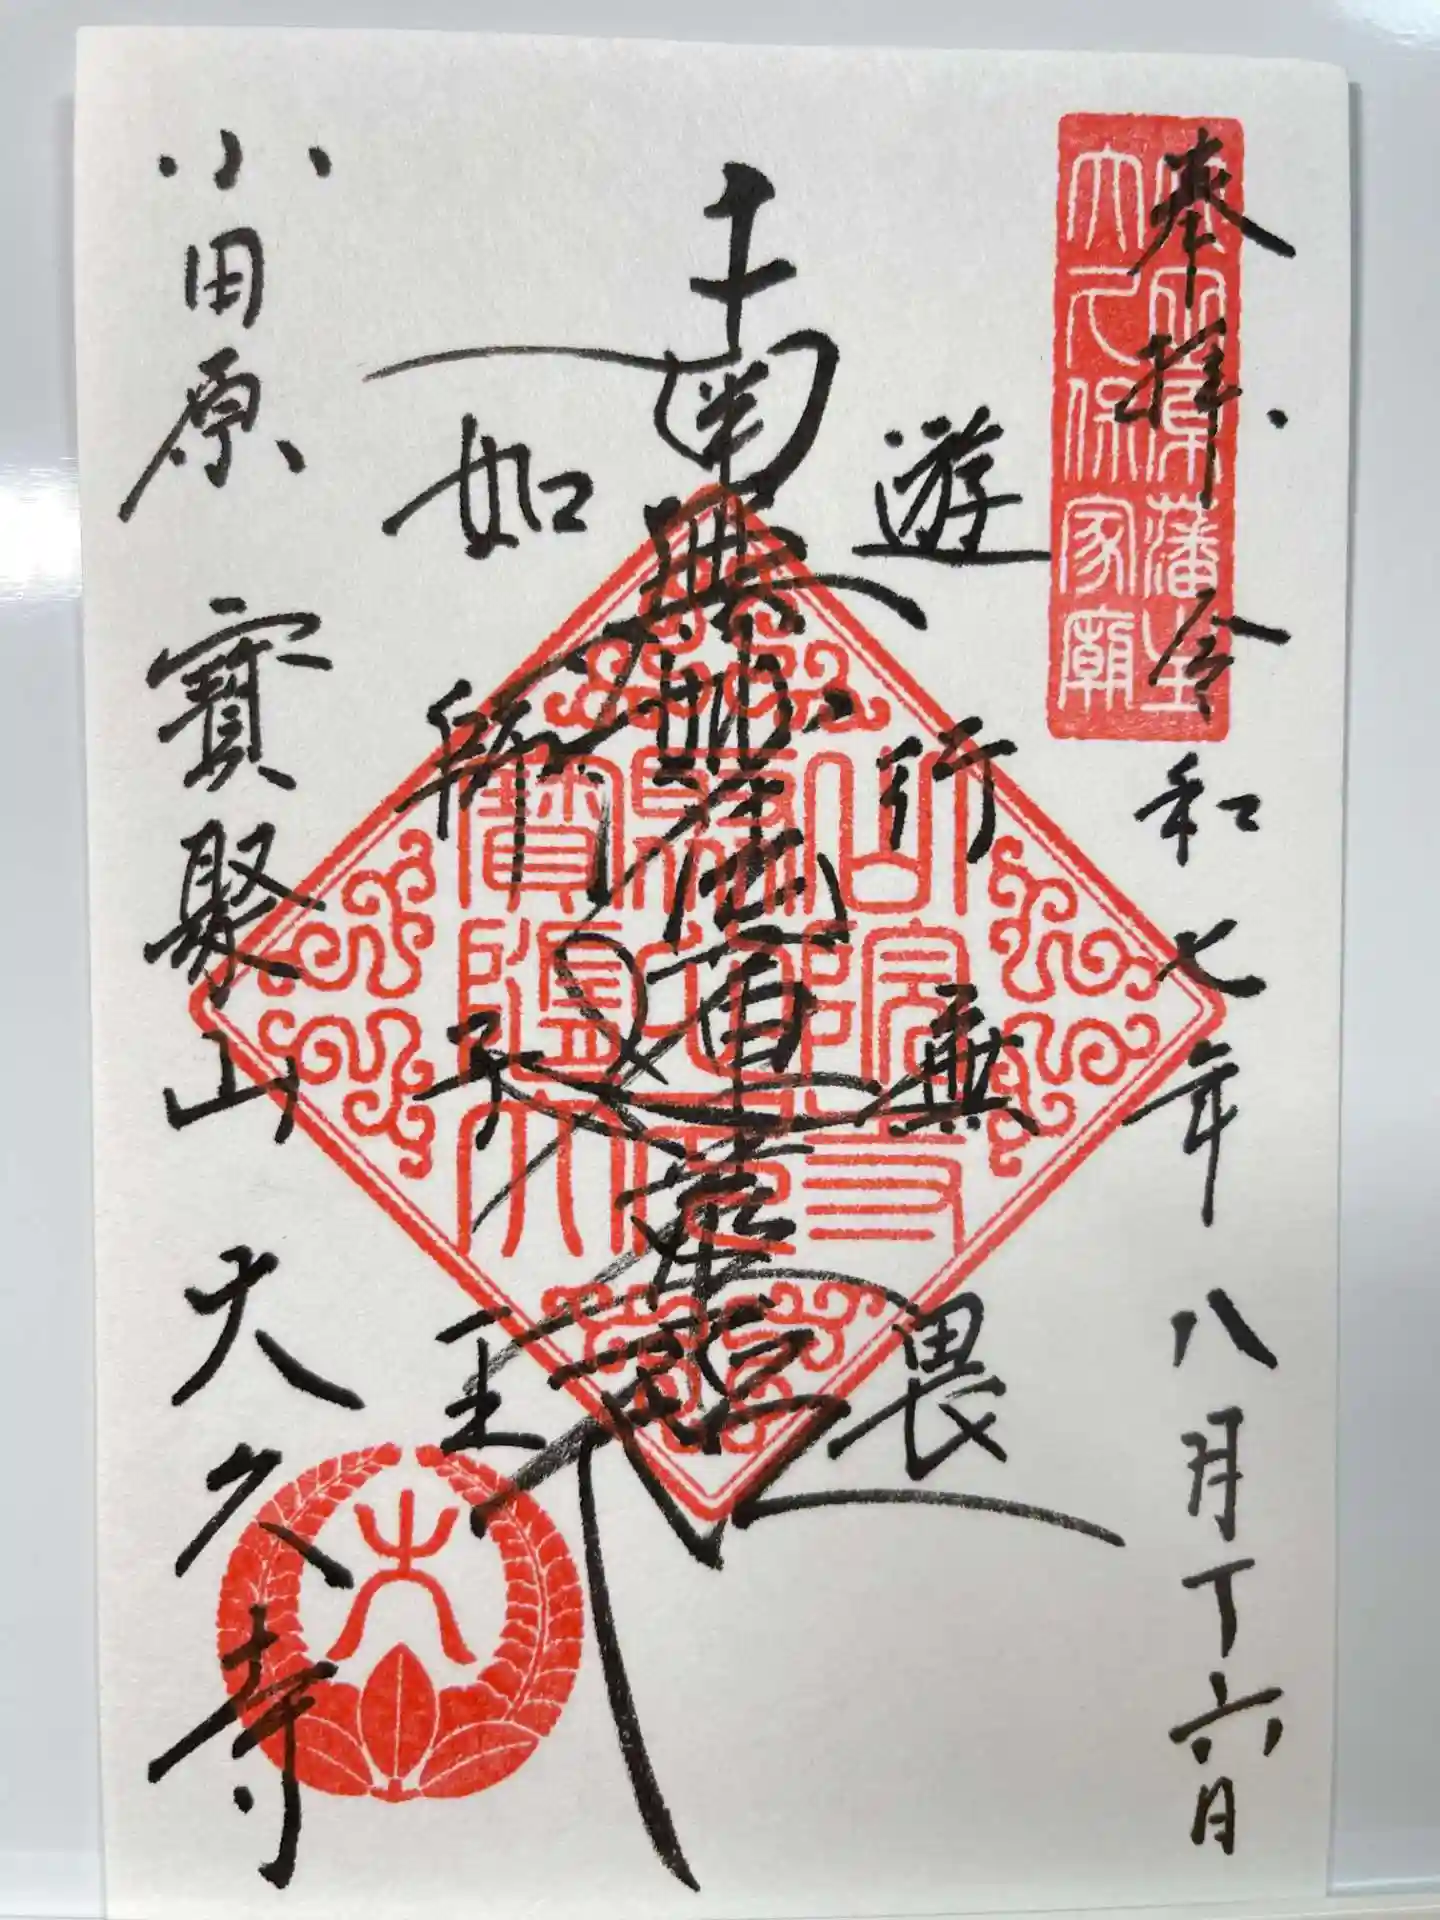 奉拝 令和七年八月十六日
大久保家廟
遊行無畏
南無妙法蓮華経
如師子王
小田原 寶聚山 大久寺